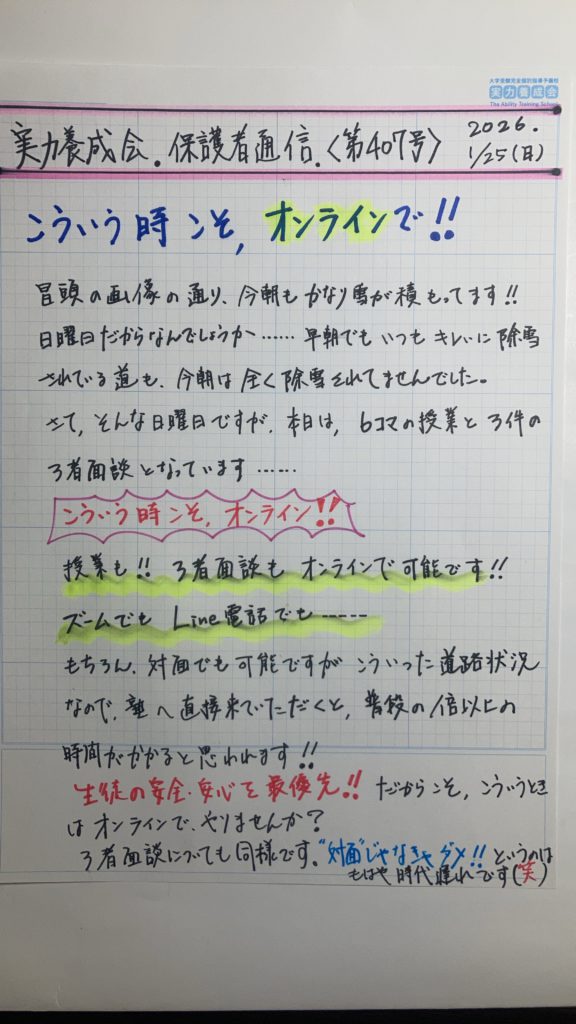 大学受験完全個別指導予備校
実力養成会
The Ability Training School
実力養成会.保護者通信.〈第407号〉
2026.
1/25(日)
こういう時こそ,オンラインで!!
冒頭の画像の通り、今朝もかなり雪が積もってます!!
日曜日だからなんでしょうか……早朝でもいつもキレイに除雪
されている道も、今朝は全く除雪されてませんでした。
さて,そんな日曜日ですが,本日は,6コマの授業と3件の
3者面談となっています……
こういう時こそ,オンライン!!
授業も!!3者面談もオンラインで可能です!!
ズームでもLine電話でも……
もちろん,対面でも可能ですがこういった道路状況
なので,塾へ直接来ていただくと,普段の1倍以上の
時間がかかると思われます!!
生徒の安全・安心を最優先!!だからこそ,こういうとき
はオンラインで,やりませんか?
3者面談についても同様です。"対面"じゃなきゃダメ!!というのは
もはや時代遅れです(実)